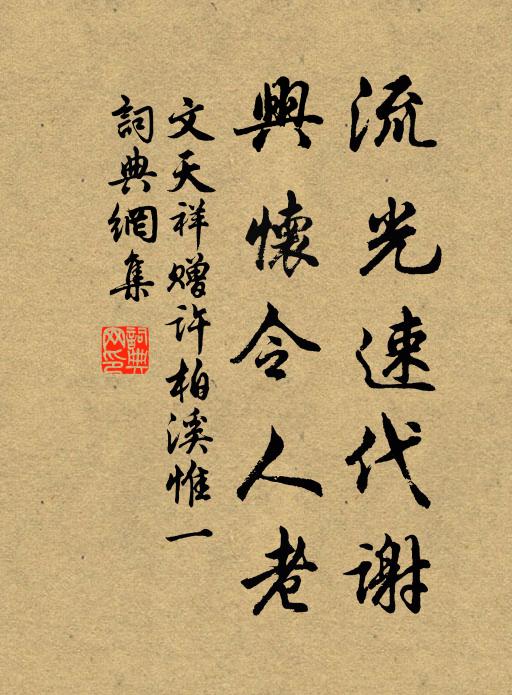 流光速代謝
興懷令人老
文天祥赠许柏溪惟一
詞典網集
詞典网印